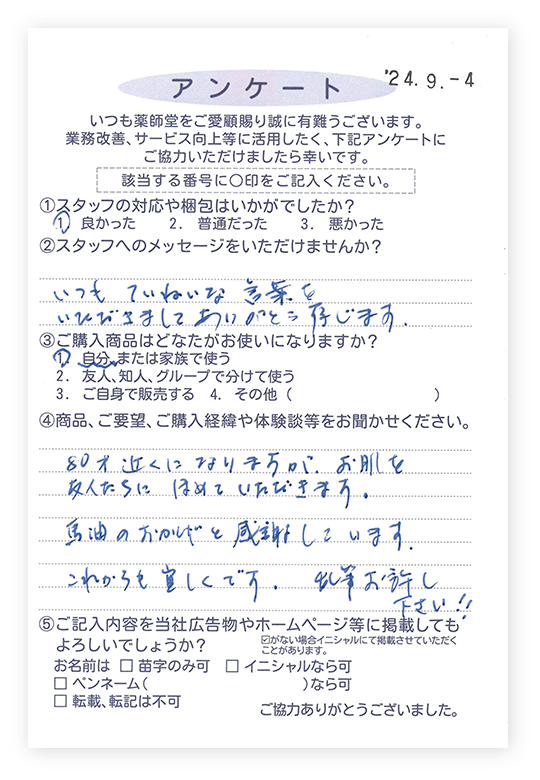 '24.9.-4
アンケート
いつも薬師堂をご愛顧賜り誠に有難うございます。
業務改善、サービス向上等に活用したく、下記アンケートに
ご協力いただけましたら幸いです。
該当する番号に○印をご記入ください。
①スタッフの対応や梱包はいかがでしたか？
1. 良かった 2. 普通だった 3. 悪かった
②スタッフへのメッセージをいただけませんか？
いつも ていねいな 言葉を
いただきまして ありがとう 存じます.
③ご購入商品はどなたがお使いになりますか？
1. 自分、または家族で使う
2. 友人、知人、グループで分けて使う
3. ご自身で販売する 4. その他（ ）
④商品、ご要望、ご購入経緯や体験談等をお聞かせください。
80才近くに なりますが、お肌を
友人たちに ほめて いただきます。
馬油の おかげと 感謝しています.
これからも 宜しくです. 乱筆お許し
下さい!!
⑤ご記入内容を当社広告物やホームページ等に掲載しても
よろしいでしょうか？
☑がない場合イニシャルにて掲載させていただく
ことがあります。
お名前は □ 苗字のみ可 □ イニシャルなら可
□ ペンネーム( )なら可
□ 転載、転記は不可
ご協力ありがとうございました。